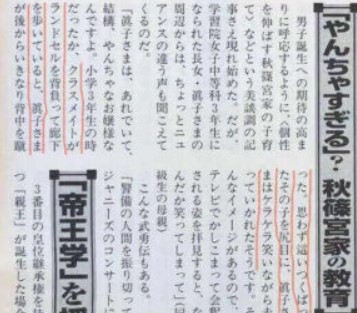 「やんちゃすぎる」？ 秋篠宮家の教育
男子誕生への期待の高ま
りに呼応するように、〈個性
を伸ばす秋篠宮家の子育
て〉などという美談調の記
事さえ現れ始めた。だが、
学習院女子中等科3年生に
なられた長女・眞子さまの
周辺からは、ちょっとニュ
アンスの違う声も聞こえて
くるのだ。
「眞子さまは、あれでいて、
結構、やんちゃなお嬢様な
んですよ。小学3年生の時
だったか、クラスメイトが
ランドセルを背負って廊下
を歩いていると、眞子さま
が後からいきなり背中を蹴
った。思わず這いつくばっ
たその子を尻目に、眞子さ
まはケラケラ笑いながら去
っていかれたそうです。そ
んなイメージがあるので、
テレビでかしこまって会釈
される姿を拝見すると、な
んだか笑ってしまって」（同
級生の母親）
こんな武勇伝もある。
「警備の人間を振り切って
ジャニーズのコンサートに
「帝王学」を
3番目の皇位継承権を持
つ「親王」が誕生した場合